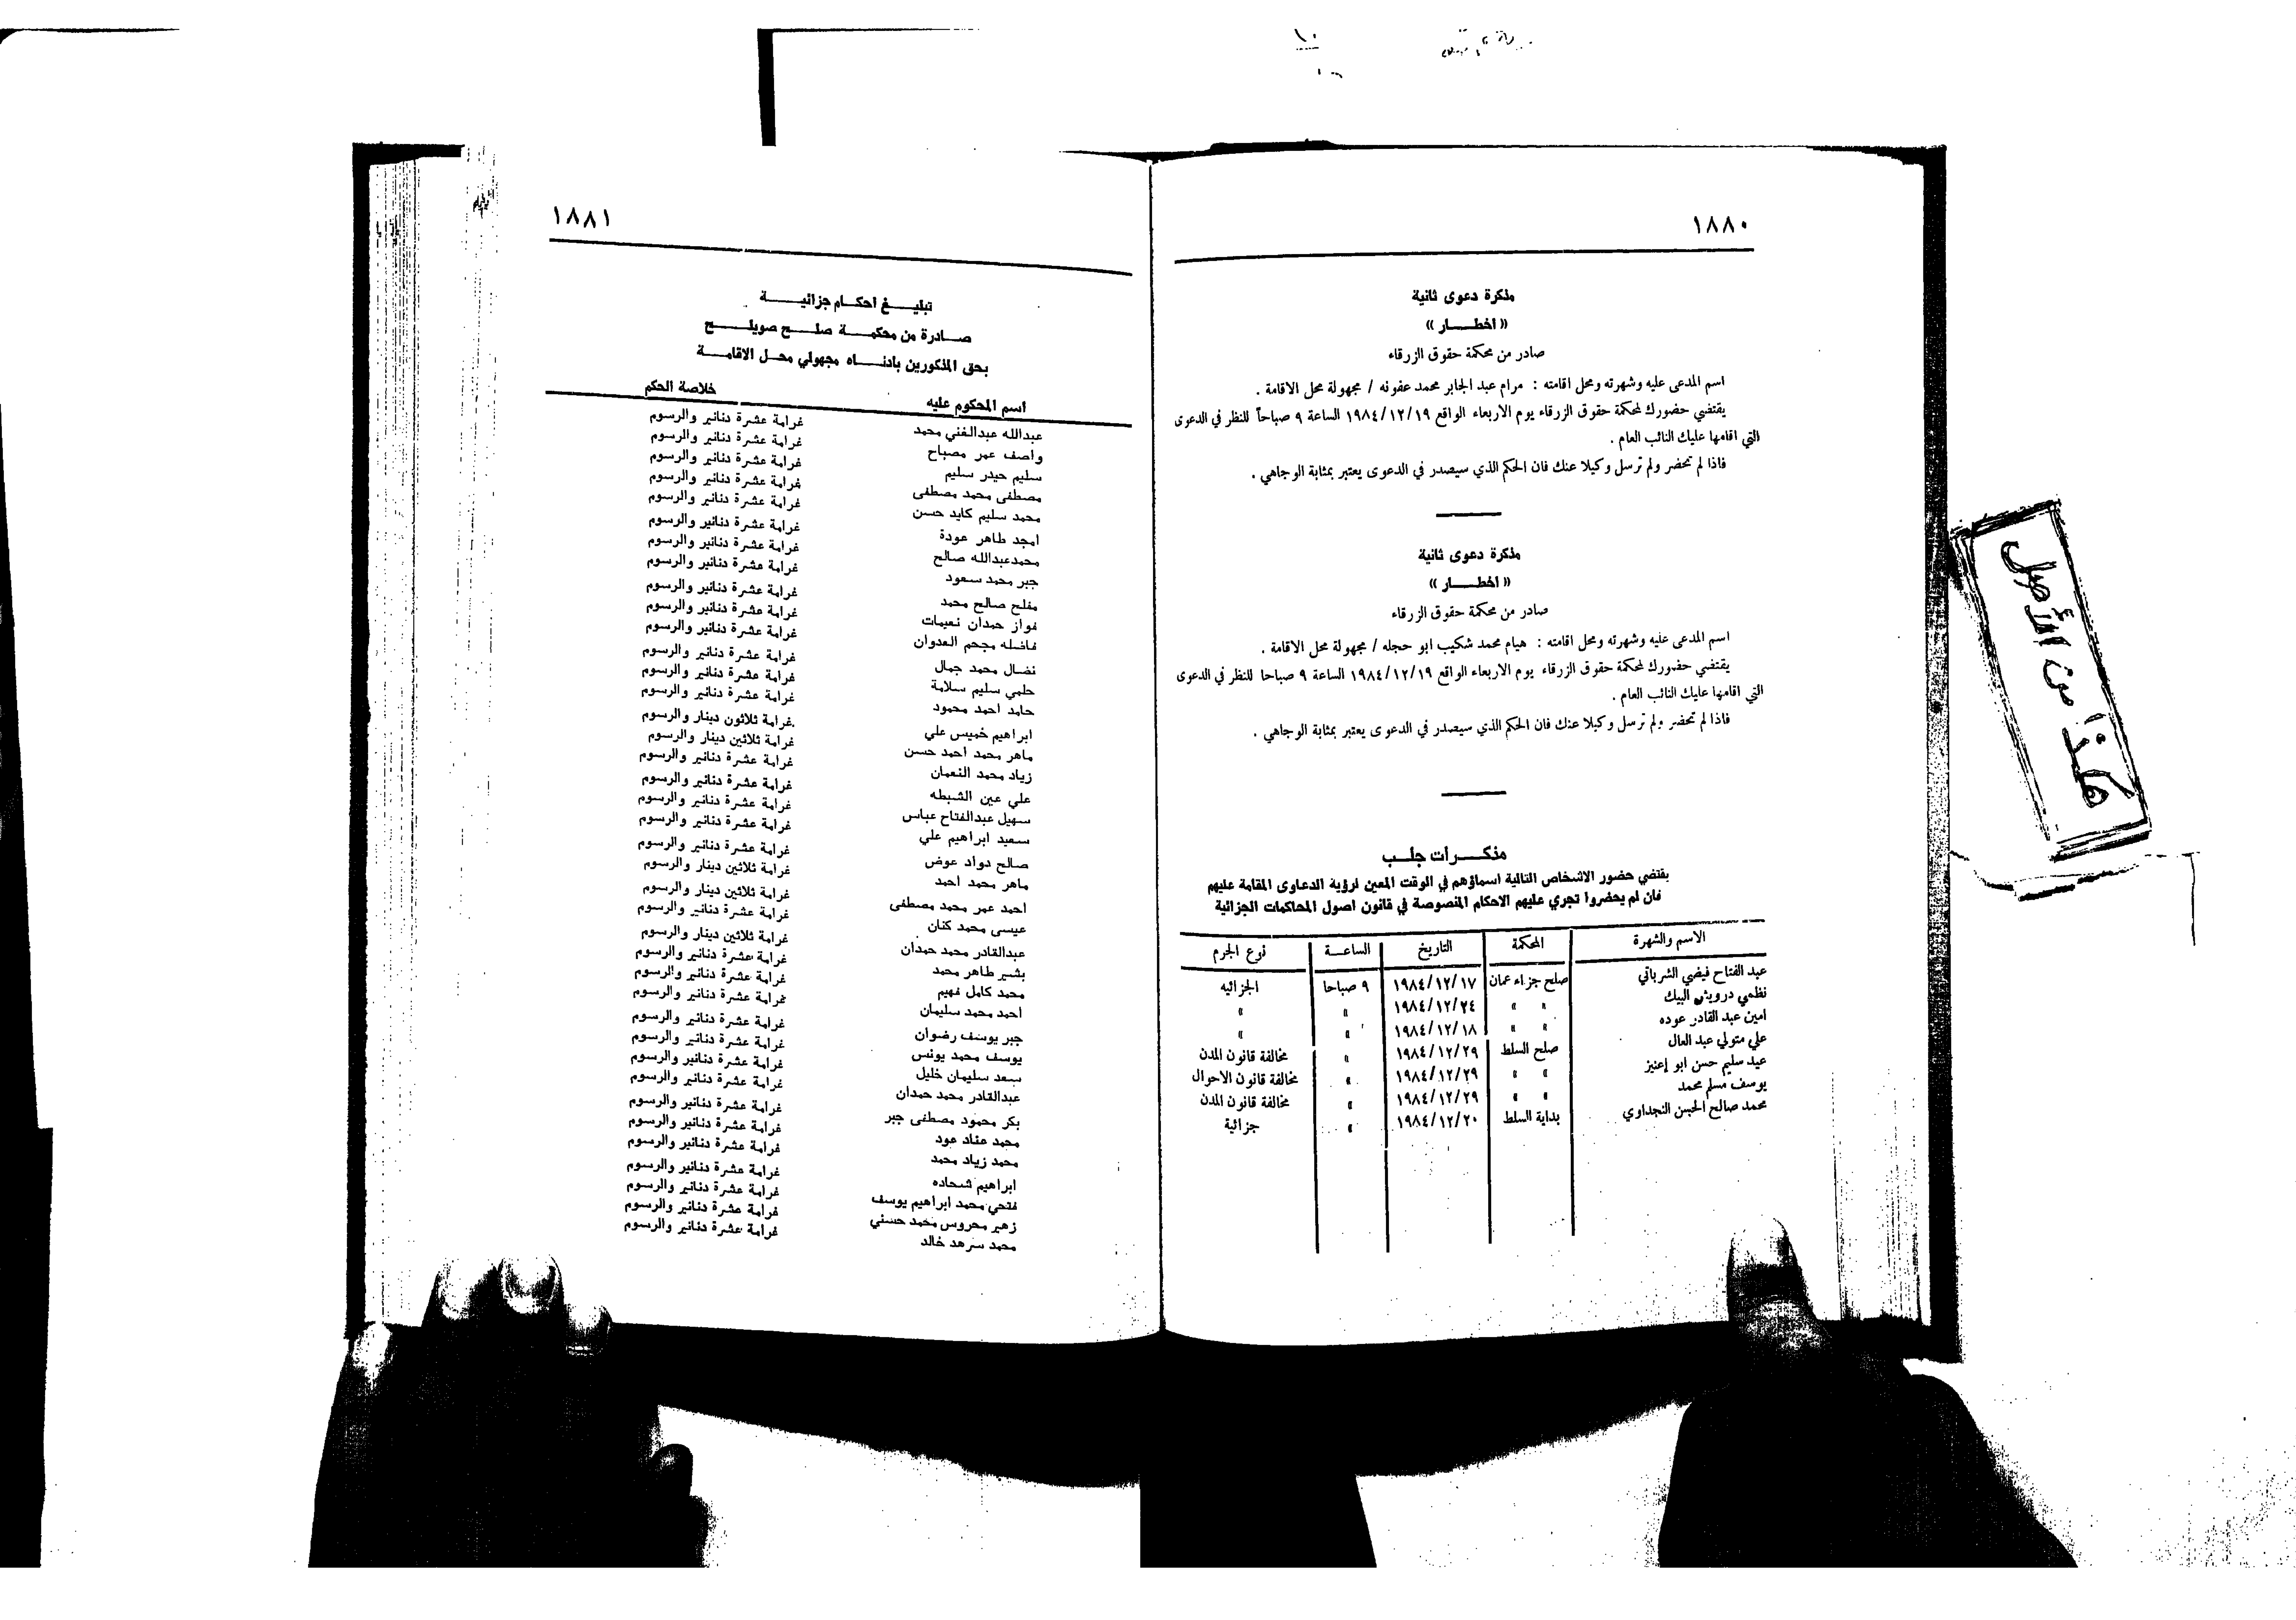 ١٨٨٠
مذكرة دعوى ثانية
« اخطـــــار »
صادر من محكمة حقوق الزرقاء
اسم المدعى عليه وشهرته ومحل اقامته : مرام عبد الجابر محمد عفونه / مجهولة محل الاقامة .
يقتضي حضورك لمحكمة حقوق الزرقاء يوم الاربعاء الواقع ١٩٨٤/١٢/١٩ الساعة ٩ صباحاً للنظر في الدعوى
التي اقامها عليك النائب العام .
فاذا لم تحضر ولم ترسل وكيلا عنك فان الحكم الذي سيصدر في الدعوى يعتبر بمثابة الوجاهي .
مذكرة دعوى ثانية
« اخطـــــار »
صادر من محكمة حقوق الزرقاء
اسم المدعى عليه وشهرته ومحل اقامته : هيام محمد شكيب ابو حجله / مجهولة محل الاقامة .
يقتضي حضورك لمحكمة حقوق الزرقاء يوم الاربعاء الواقع ١٩٨٤/١٢/١٩ الساعة ٩ صباحا للنظر في الدعوى
التي اقامها عليك النائب العام .
فاذا لم تحضر ولم ترسل وكيلا عنك فان الحكم الذي سيصدر في الدعوى يعتبر بمثابة الوجاهي .
مذكــــرات جلــب
يقتضي حضور الاشخاص التالية اسماؤهم في الوقت المعين لرؤية الدعاوى المقامة عليهم
فان لم يحضروا تجري عليهم الاحكام المنصوصة في قانون اصول المحاكمات الجزائية
الاسم والشهرة المحكمة التاريخ الساعـــة نوع الجرم
عبد الفتاح فيضي الشرباتي صلح جزاء عمان ١٩٨٤/١٢/١٧ ٩ صباحا الجزائيه
نظمي درويش البيك » » ١٩٨٤/١٢/٢٤ » »
امين عبد القادر عوده » » ١٩٨٤/١٢/١٨ » »
علي متولي عبد العال صلح السلط ١٩٨٤/١٢/٢٩ » مخالفة قانون المدن
عيد سليم حسن ابو إعنيز » » ١٩٨٤/١٢/٢٩ » مخالفة قانون الاحوال
يوسف مسلم محمد » » ١٩٨٤/١٢/٢٩ » مخالفة قانون المدن
محمد صالح الحسن النجداوي بداية السلط ١٩٨٤/١٢/٢٠ » جزائية
هكذا من الأصل
١٨٨١
تبليـــــغ احكـــام جزائيـــــــة
صـــادرة من محكمــــــة صلــــــح صويلــــــح
بحق المذكورين بادنـــــاه مجهولي محـــل الاقامـــــة
اسم المحكوم عليه خلاصة الحكم
عبدالله عبدالغني محمد غرامة عشرة دنانير والرسوم
واصف عمر مصباح غرامة عشرة دنانير والرسوم
سليم حيدر سليم غرامة عشرة دنانير والرسوم
مصطفى محمد مصطفى غرامة عشرة دنانير والرسوم
محمد سليم كايد حسن غرامة عشرة دنانير والرسوم
امجد طاهر عودة غرامة عشرة دنانير والرسوم
محمدعبدالله صالح غرامة عشرة دنانير والرسوم
جبر محمد سعود غرامة عشرة دنانير والرسوم
مفلح صالح محمد غرامة عشرة دنانير والرسوم
فواز حمدان نعيمات غرامة عشرة دنانير والرسوم
فاضله مجحم العدوان غرامة عشرة دنانير والرسوم
نضال محمد جمال غرامة عشرة دنانير والرسوم
حلمي سليم سلامة غرامة عشرة دنانير والرسوم
حامد احمد محمود غرامة عشرة دنانير والرسوم
ابراهيم خميس علي غرامة ثلاثون دينار والرسوم
ماهر محمد احمد حسن غرامة ثلاثين دينار والرسوم
زياد محمد النعمان غرامة عشرة دنانير والرسوم
علي عين الشبطه غرامة عشرة دنانير والرسوم
سهيل عبدالفتاح عباس غرامة عشرة دنانير والرسوم
سعيد ابراهيم علي غرامة عشرة دنانير والرسوم
صالح دواد عوض غرامة عشرة دنانير والرسوم
ماهر محمد احمد غرامة ثلاثين دينار والرسوم
احمد عمر محمد مصطفى غرامة ثلاثين دينار والرسوم
عيسى محمد كنان غرامة عشرة دنانير والرسوم
عبدالقادر محمد حمدان غرامة ثلاثين دينار والرسوم
بشير طاهر محمد غرامة عشرة دنانير والرسوم
محمد كامل فهيم غرامة عشرة دنانير والرسوم
احمد محمد سليمان غرامة عشرة دنانير والرسوم
جبر يوسف رضوان غرامة عشرة دنانير والرسوم
يوسف محمد يونس غرامة عشرة دنانير والرسوم
سعد سليمان خليل غرامة عشرة دنانير والرسوم
عبدالقادر محمد حمدان غرامة عشرة دنانير والرسوم
بكر محمود مصطفى جبر غرامة عشرة دنانير والرسوم
محمد عناد عود غرامة عشرة دنانير والرسوم
محمد زياد محمد غرامة عشرة دنانير والرسوم
ابراهيم شحاده غرامة عشرة دنانير والرسوم
فتحي محمد ابراهيم يوسف غرامة عشرة دنانير والرسوم
زهير محروس محمد حسني غرامة عشرة دنانير والرسوم
محمد سرهد خالد غرامة عشرة دنانير والرسوم